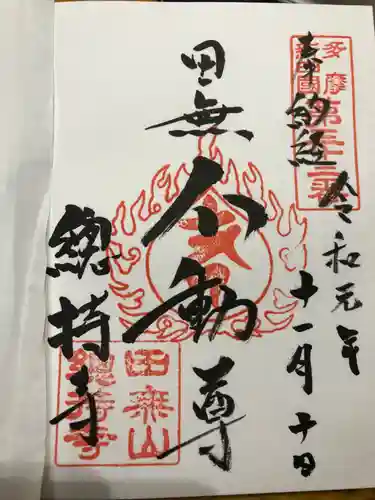 奉納経
令和元年
十一月十日
多摩
新四国
第三十二番
田無不動尊
總持寺
田無山
總持寺